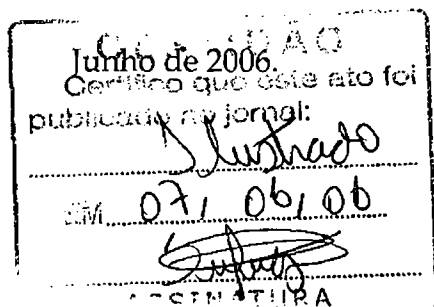 CERTIDÃO
Junho de 2006.
Certifico que este ato foi
publicado no jornal:
Ilustrado
EM 07, 06, 06
ASSINATURA